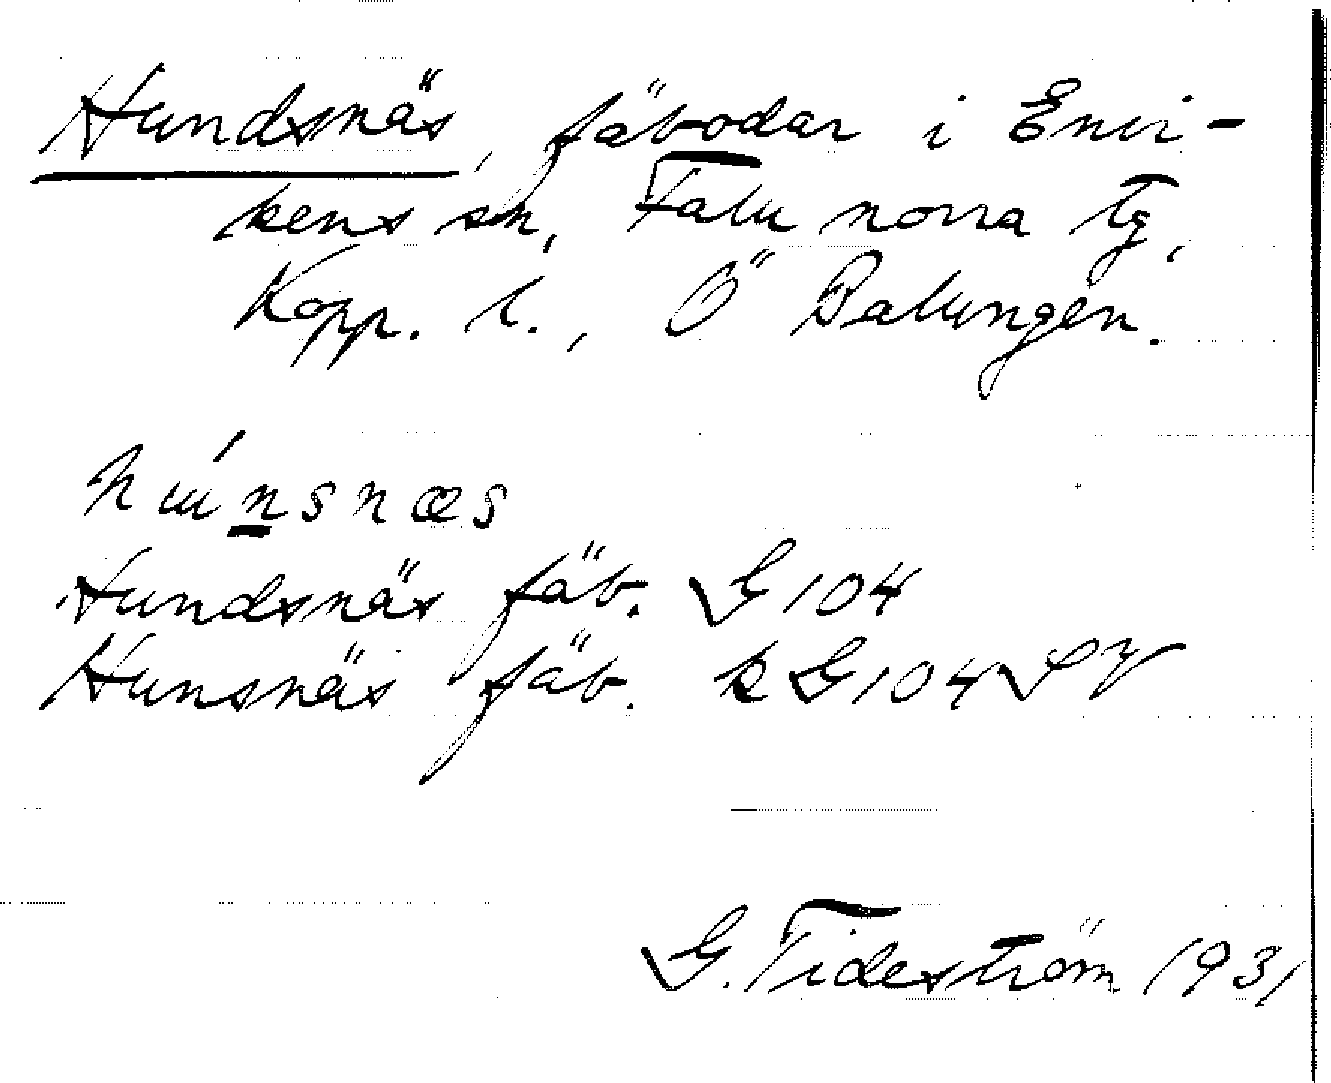 Hundsnäs, fäbodar i Envi-
kens sn, Falu norra tg,
Kopp. l., Ö Balungen.
húnsnæs
Hundsnäs fäb. G 104
Hunsnäs fäb. k G 104
G. Tideström 1931